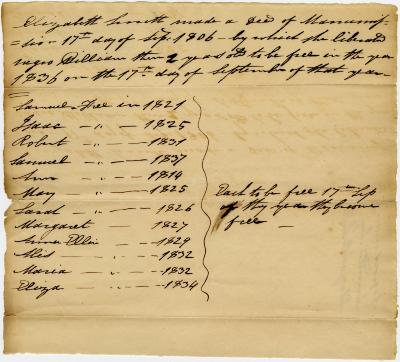 Elizabeth made a Deed of Manumis
=sion 17th day of Sep. 1806 - by which she liberated
negro William then 2 years old to be free in the year
1836 on the 17th day of September of that year
Samuel - Free in 1821
Isaac - " - 1825
Robert - " - 1831
Samuel - " - 1837
Ann - " - 1814
May - " - 1825
Sarah - " - 1826
Margaret - 1827
Ellin - 1829
1832
Maria - 1832
Eliza - 1834
Each to be free 17th Sep
of the year they become
free -